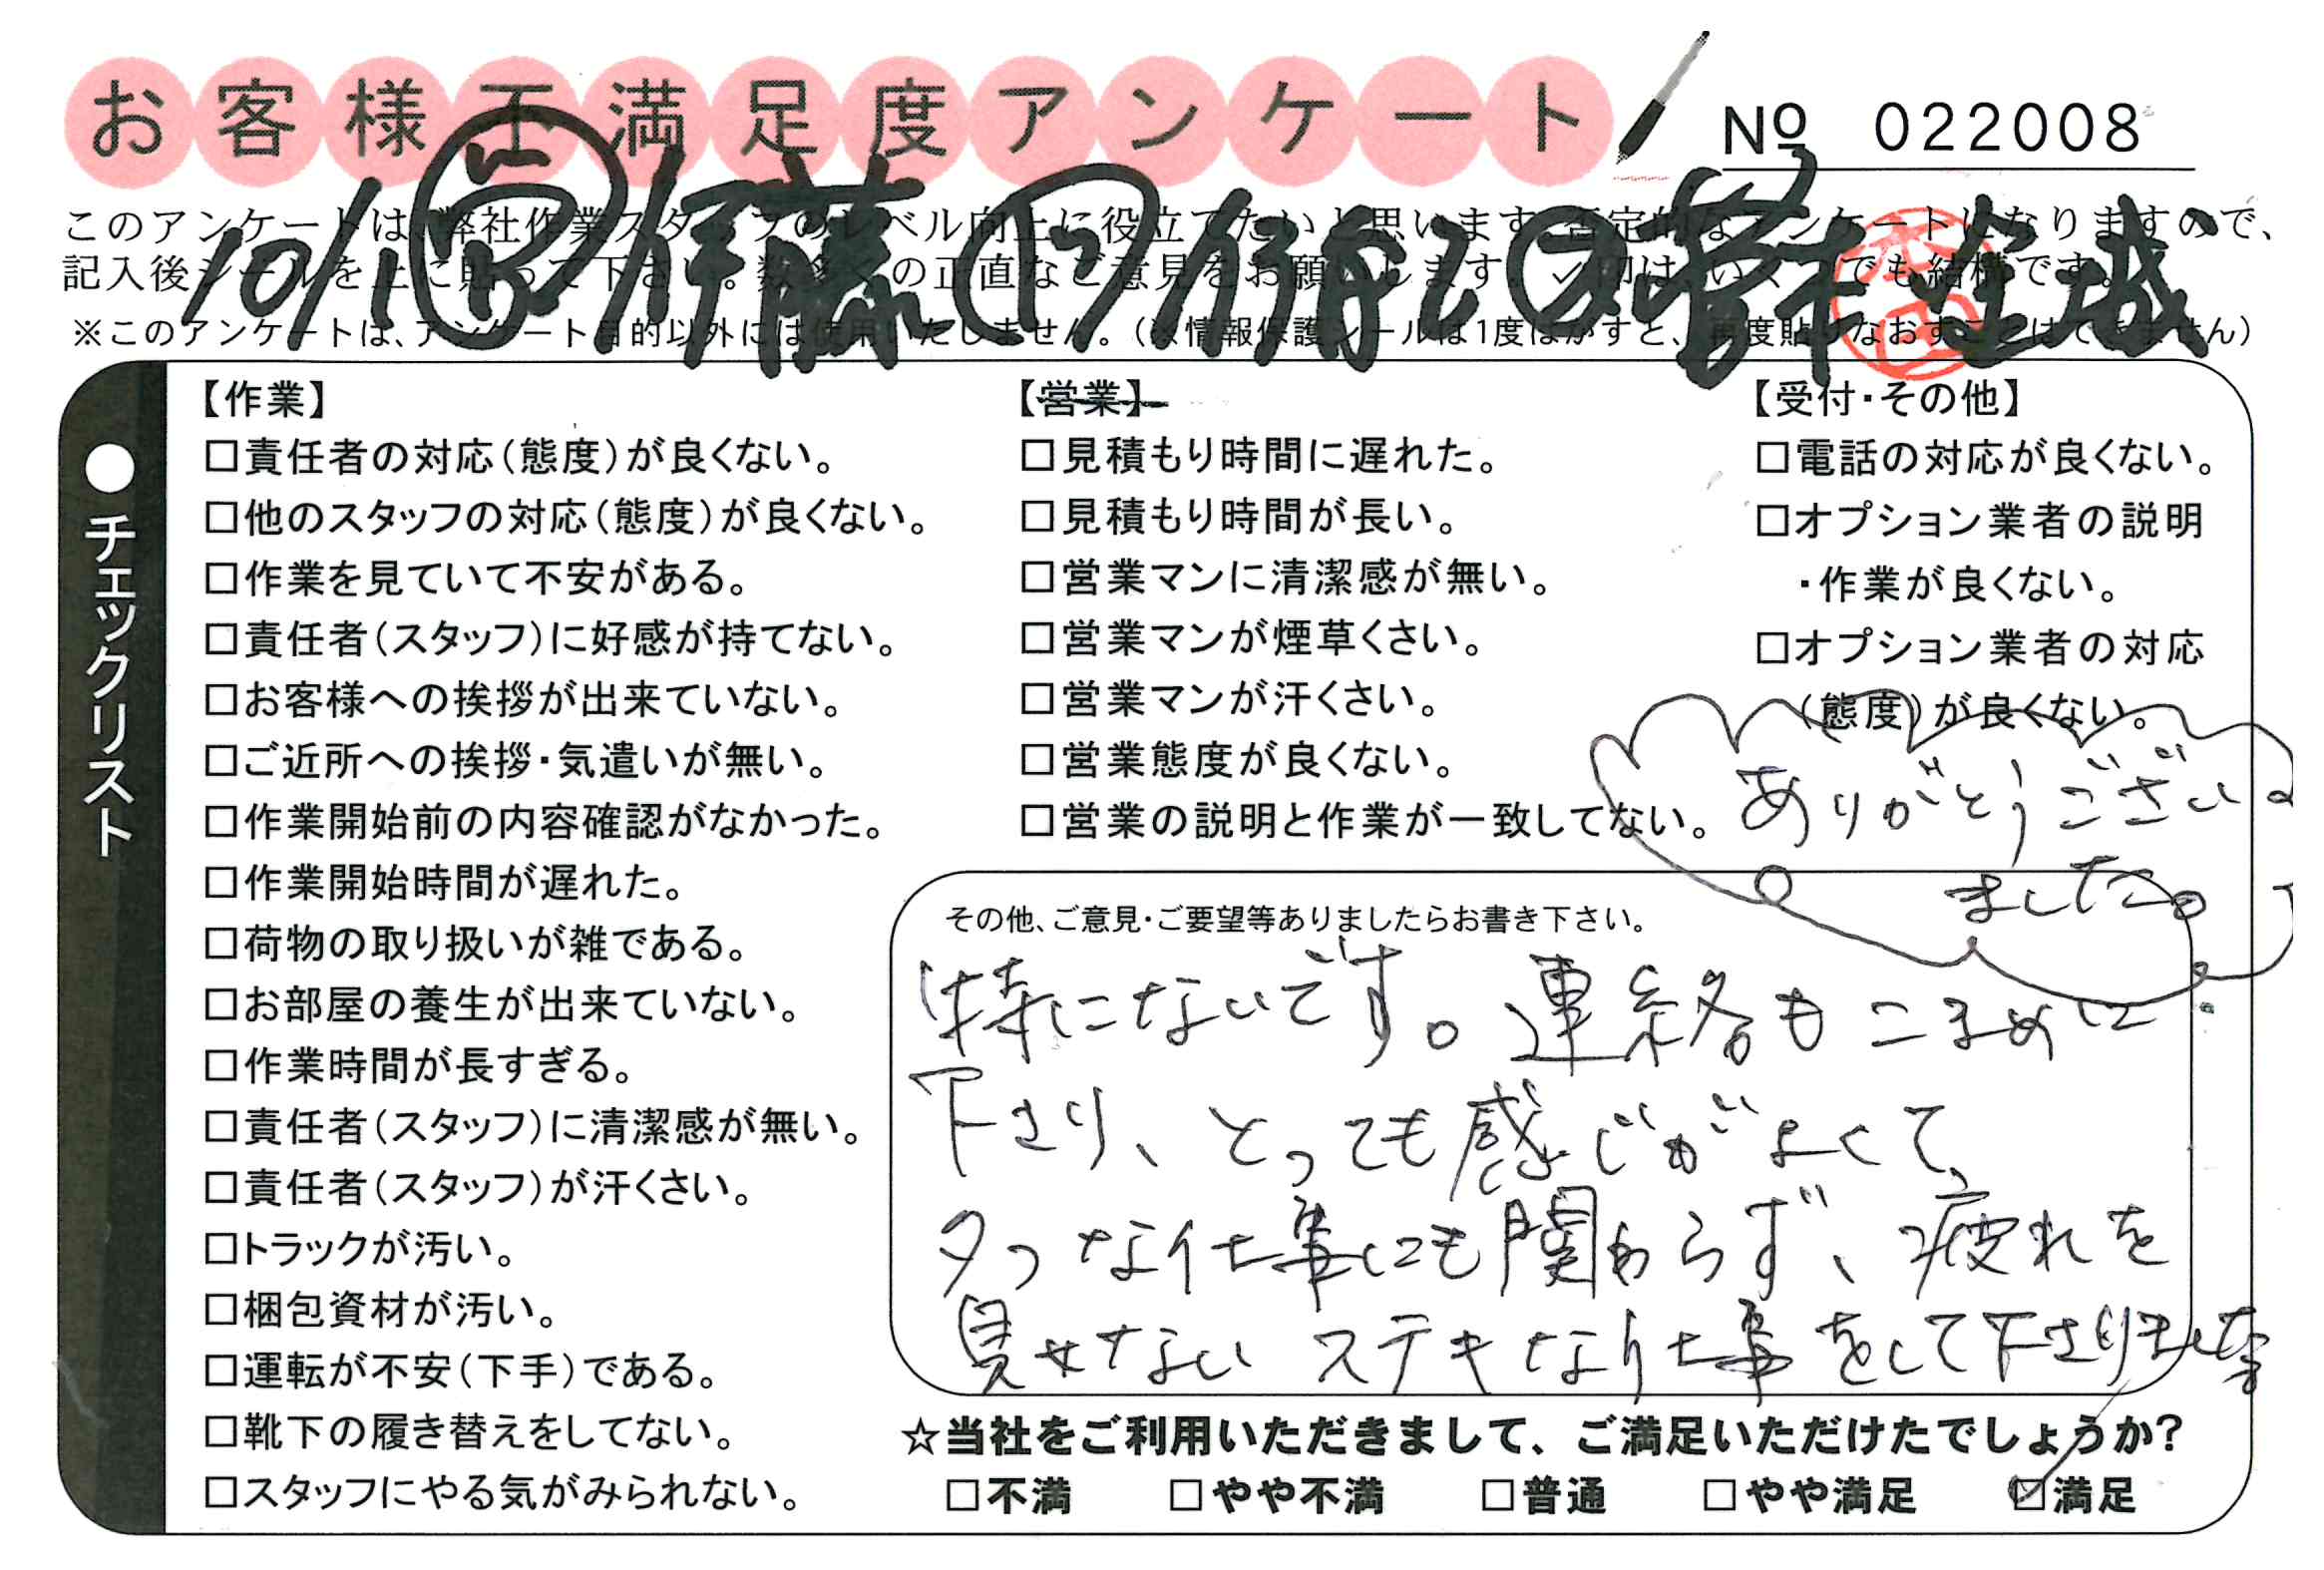 お客様不満足度アンケート
Nº 022008
10/1 伊藤
このアンケートは、弊社作業スタッフのレベル向上に役立てたいと思います。否定的なアンケートになりますので、
記入後シールを上に貼って下さい。数多くの正直なご意見をお願いします。✓印は、いくつでも結構です。
※このアンケートは、アンケート目的以外には使用いたしません。(※情報保護シールは1度はがすと、再度貼りなおすことはできません)
●チェックリスト
【作業】
□責任者の対応(態度)が良くない。
□他のスタッフの対応(態度)が良くない。
□作業を見ていて不安がある。
□責任者(スタッフ)に好感が持てない。
□お客様への挨拶が出来ていない。
□ご近所への挨拶・気遣いが無い。
□作業開始前の内容確認がなかった。
□作業開始時間が遅れた。
□荷物の取り扱いが雑である。
□お部屋の養生が出来ていない。
□作業時間が長すぎる。
□責任者(スタッフ)に清潔感が無い。
□責任者(スタッフ)が汗くさい。
□トラックが汚い。
□梱包資材が汚い。
□運転が不安(下手)である。
□靴下の履き替えをしてない。
□スタッフにやる気がみられない。
【営業】
□見積もり時間に遅れた。
□見積もり時間が長い。
□営業マンに清潔感が無い。
□営業マンが煙草くさい。
□営業マンが汗くさい。
□営業態度が良くない。
□営業の説明と作業が一致してない。
【受付・その他】
□電話の対応が良くない。
□オプション業者の説明
・作業が良くない。
□オプション業者の対応
(態度)が良くない。
ありがとうござい
ました。
その他、ご意見・ご要望等ありましたらお書き下さい。
特にないです。連絡もこまめに
下さり、とっても感じがよくて、
タフな仕事にも関わらず、疲れを
見せないステキな仕事をして下さりました
☆当社をご利用いただきまして、ご満足いただけたでしょうか?
□不満 □やや不満 □普通 □やや満足 ☑満足